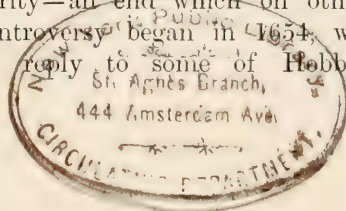 rity—an end which on oth
ntroversy began in 1654, w
reply to some of Hobb
New York Public Library
St. Agnes Branch,
444 Amsterdam Ave.
CIRCULATING DEPARTMENT.